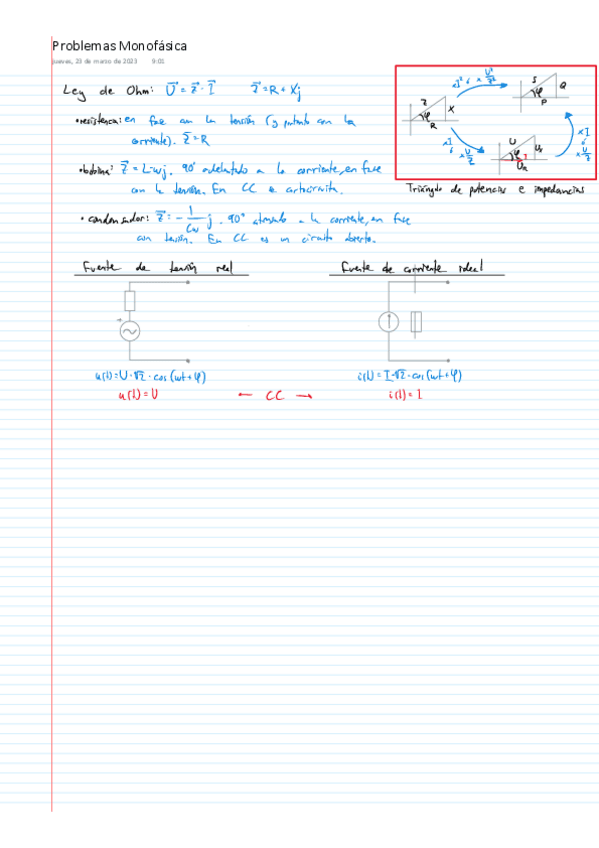 Problemas Monofásica
jueves, 23 de marzo de 2023 9:01
Ley de Ohm: U⃗ = Z⃗ · I⃗ Z⃗ = R + Xj
• resistencia: en fase con la tensión (y por tanto con la
corriente). Z⃗ = R
• bobina: Z⃗ = L·ωj. 90° adelantado a la corriente, en fase
con la tensión. En CC es cortocircuito.
• condensador: Z⃗ = - 1/Cω j. 90° atrasado a la corriente, en fase
con tensión. En CC es un circuito abierto.
Z φ R X
xI² ó x U²/Z²
S φ P Q
xI ó x U/Z
U φ I U_R U_X
xI ó x U/Z
Triángulo de potencias e impedancias
Fuente de tensión real
Fuente de corriente ideal
u(t) = U · √2 · cos(ωt + φ)
i(t) = I · √2 · cos(ωt + φ)
u(t) = U ← CC → i(t) = I